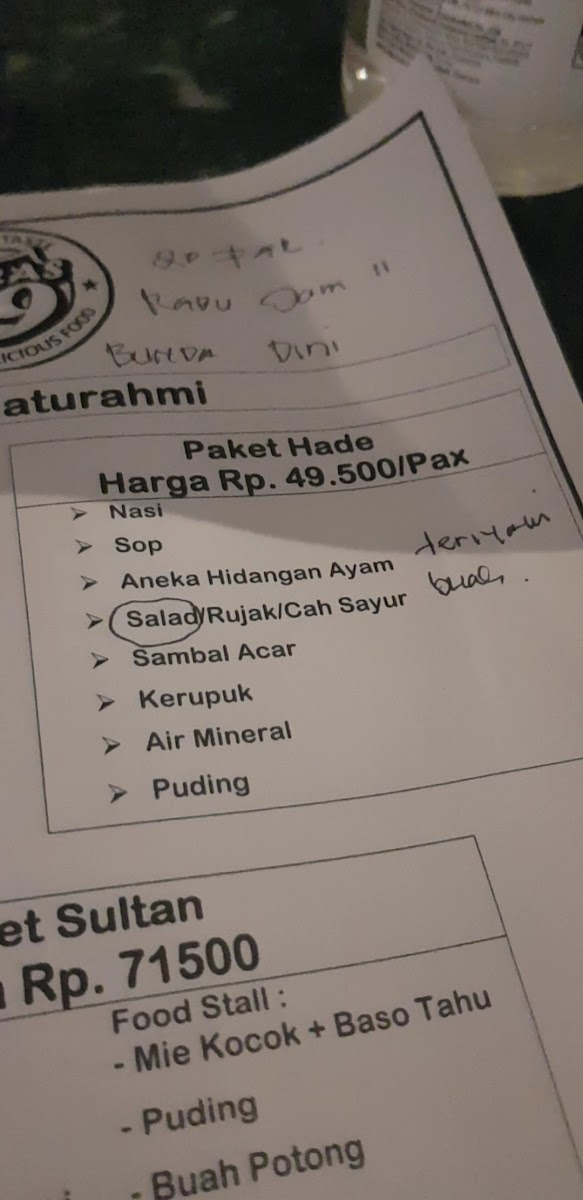 ICIOUS FOOD
BUNDA Dini
aturahmi
Paket Hade
Harga Rp. 49.500/Pax
Nasi
Sop
Aneka Hidangan Ayam teriyaki
Salad/Rujak/Cah Sayur buah.
Sambal Acar
Kerupuk
Air Mineral
Puding
et Sultan
Rp. 71500
Food Stall :
- Mie Kocok + Baso Tahu
- Puding
- Buah Potong